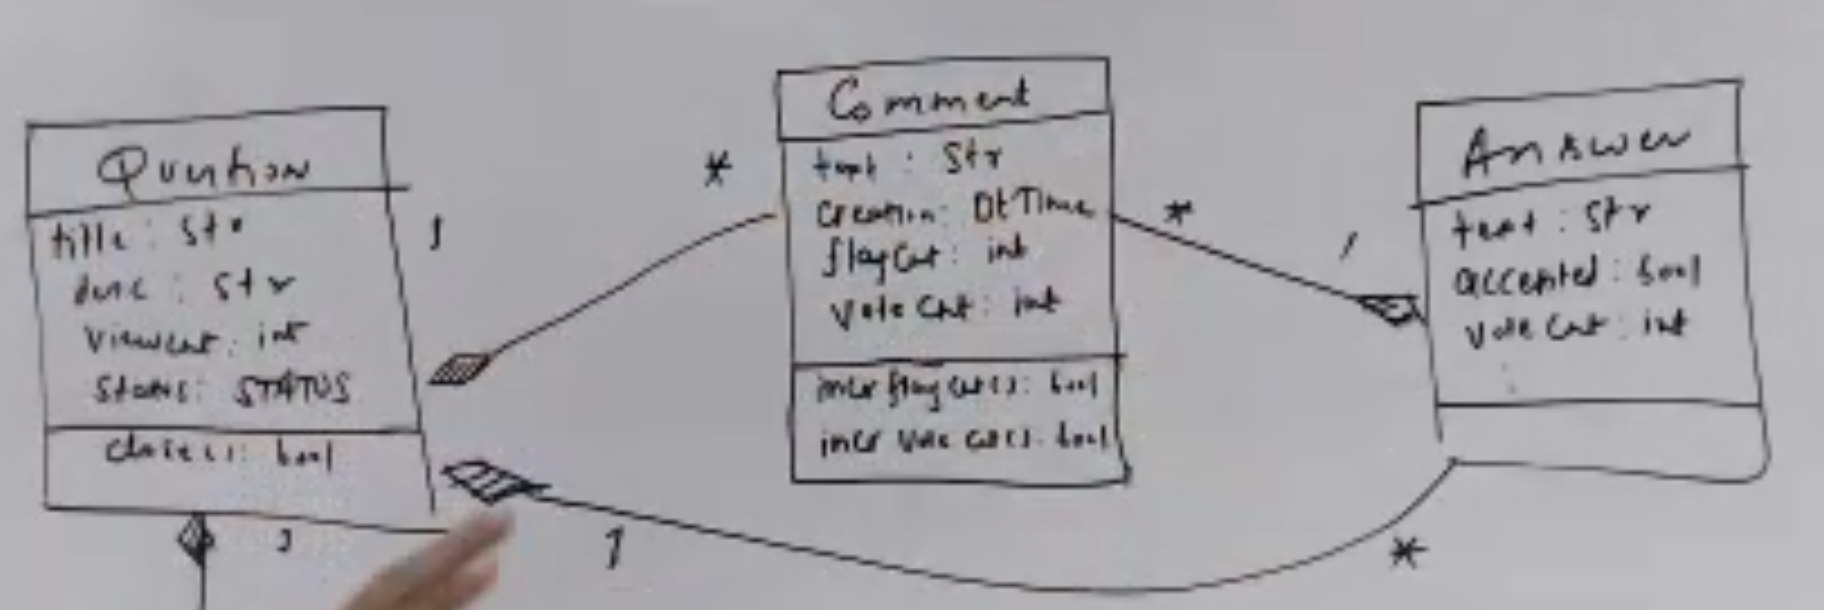 Question
title : Str
desc : Str
viewcnt : int
Status : STATUS
close() : bool
1
*
Comment
text : Str
Creation : DtTime
flagCnt : int
Vote Cnt : int
incr flag cnt() : bool
incr Vote cnt() : bool
*
1
Answer
text : Str
accepted : bool
Vote Cnt : int
1
1
*